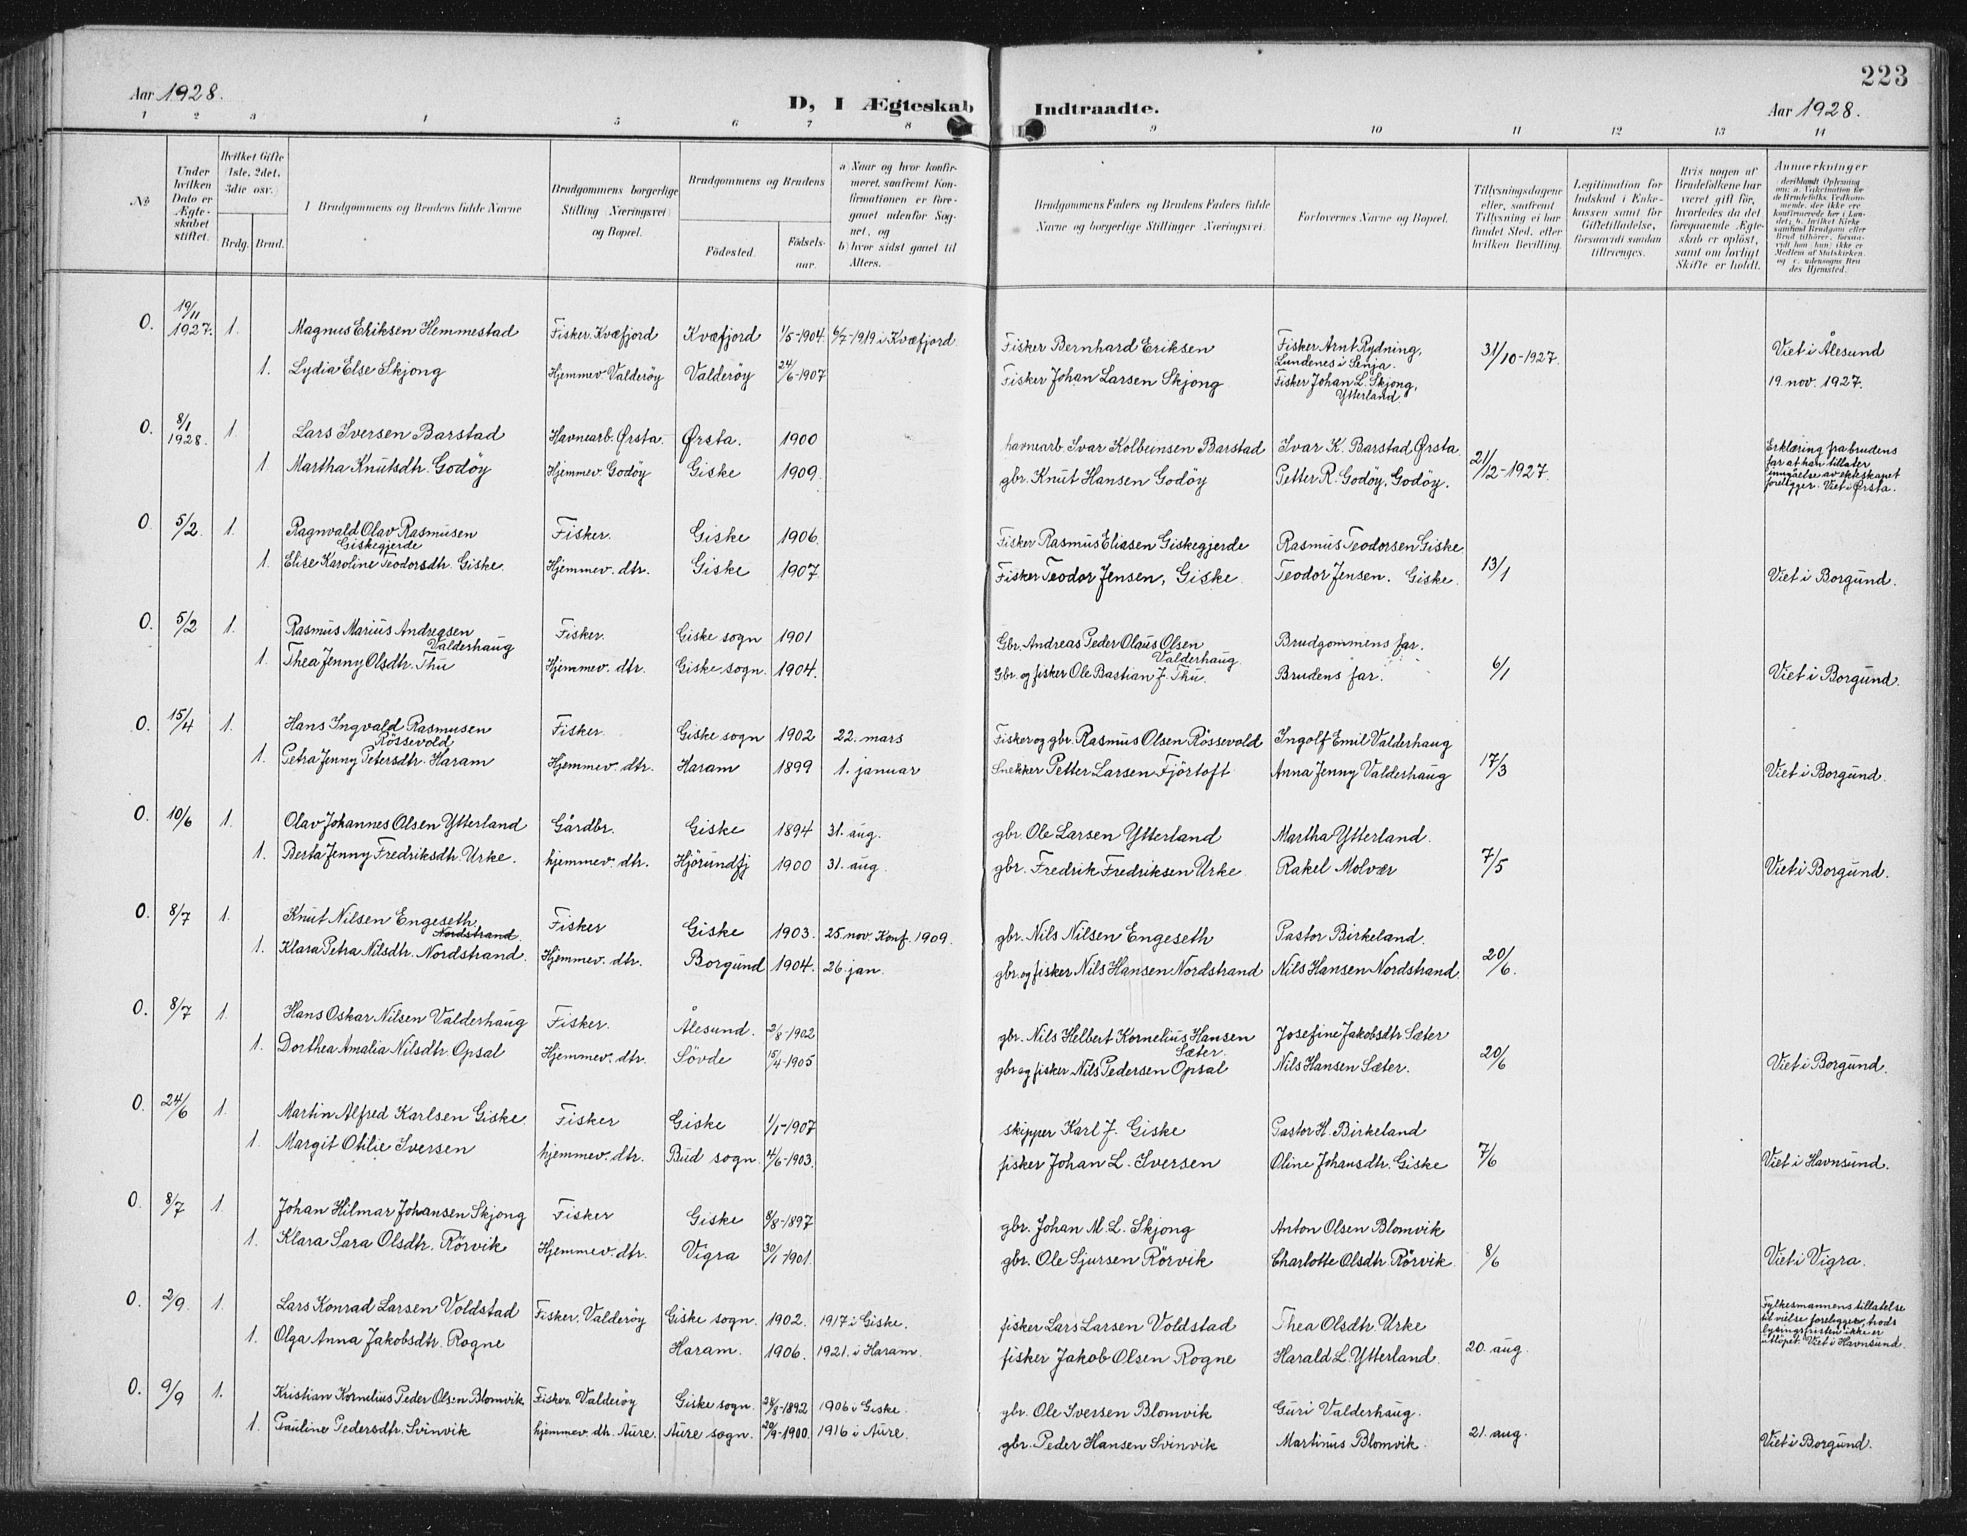 223
Aar 1928.
D, I Ægteskab Indtraadte.
Aar 1928.
1 2 3 4 5 6 7 8 9 10 11 12 13 14
No
Under hvilken Dato er Ægteskabet stiftet.
Hvilket Gifte (1ste, 2det, 3die osv.)
Brdg. Brud.
Brudgommens og Brudens fulde Navne
Brudgommens borgerlige Stilling (Næringsvei) og Bopæl.
Brudgommens og Brudens
Födested.
Födselsaar.
a Naar og hvor konfirmeret, saafremt Konfirmationen er foregaaet udenfor Sognet, og
b) hvor sidst gaaet til Alters.
Brudgommens Faders og Brudens Faders fulde Navne og borgerlige Stillinger (Næringsvei).
Forlovernes Navne og Bopæl.
Tillysningsdagene eller, saafremt Tillysning ei har fundet Sted, efter hvilken Bevilling.
Legitimation for Indskud i Enkekassen samt for Giftetilladelse, forsaavidt saadan tiltrænges.
Hvis nogen af Brudefolkene har været gift før, hvorledes da det foregaaende Ægteskab er opløst, samt om lovligt Skifte er holdt.
Anmerkninger
O. 19/11 1927. 1. Magnus Eriksen Hemmestad Fisker. Kvæfjord Kvæfjord 1/5-1904 6/7-1919 i Kvæfjord Fisker Bernhard Eriksen Fisker Arnt Rydning, Lundenes i Senja. 31/10-1927. Viet i Ålesund
1. Lydia Else Skjong Hjemmev. Valderöy Valderöy 24/6-1907 Fisker Johan Larsen Skjong Fisker Johan L. Skjong, Ytterland 19. nov. 1927.
O. 8/1 1928. 1. Lars Iversen Barstad Havnearb. Ørsta. Ørsta. 1900 havnarb. Ivar Kolbeinsen Barstad Ivar K. Barstad Ørsta 21/12-1927. Erklæring fra brudens far at han tillater inngåelse av ekteskapet foreligger. Viet i Ørsta.
1. Martha Knutsdtr. Godöy Hjemmev. Godöy Giske 1909. gbr. Knut Hansen Godöy Petter R. Godöy, Godöy.
O. 5/2 1. Ragnvald Olav Rasmusen Giskegjerde Fisker. Giske 1906. Fisker Rasmus Eliasen Giskegjerde Rasmus Teodorsen Giske
1. Elise Karoline Teodorsdtr. Giske. Hjemmev. dtr. Giske 1907. Fisker Teodor Jensen, Giske. Teodor Jensen. Giske. 13/1 Viet i Borgund.
O. 5/2 1. Rasmus Marius Andreasen Valderhaug Fisker. Giske sogn 1901 Gbr. Andreas Peder Olaus Olsen Valderhaug. Brudgommens far.
1. Thea Jenny Olsdtr. Thu Hjemmev. dtr. Giske sogn. 1904. Gbr. og fisker Ole Bastian J. Thu. Brudens far. 6/1 Viet i Borgund.
O. 15/4 1. Hans Ingvald Rasmusen Rössevold Fisker. Giske sogn 1902 22. mars Fisker og gbr. Rasmus Olsen Rössevold Ingolf Emil Valderhaug
1. Petra Jenny Petersdtr. Haram Hjemmev. dtr. Haram 1899 1. januar Snekker Petter Larsen Fjörtoft Anna Jenny Valderhaug 17/3 Viet i Borgund.
O. 10/6 1. Olav Johannes Olsen Ytterland Gårdbr. Giske 1894 31. aug. gbr. Ole Larsen Ytterland Martha Ytterland.
1. Berta Jenny Fredriksdtr. Urke. hjemmev. dtr. Hjörundfj 1900 31. aug. gbr. Fredrik Fredriksen Urke. Rakel Molvær 7/5 Viet i Borgund.
O. 8/7 1. Knut Nilsen Engeseth Nordstrand Fisker Giske 1903. 25. nov. Konf. 1909. gbr. Nils Nilsen Engeseth Pastor Birkeland.
1. Klara Petra Nilsdtr. Nordstrand. Hjemmev. dtr. Borgund 1904. 26. jan. gbr. og fisker Nils Hansen Nordstrand Nils Hansen Nordstrand. 20/6.
O. 8/7 1. Hans Oskar Nilsen Valderhaug Fisker. Ålesund. 2/8-1902 gbr. Nils Helbert Kornelius Hansen Sæter. Josefine Jakobsdtr Sæter
1. Dorthea Amalia Nilsdtr Opsal Hjemmev. dtr. Sövde 15/4-1905 gbr og fisker Nils Pedersen Opsal Nils Hansen Sæter. 20/6 Viet i Borgund.
O. 24/6 1. Martin Alfred Karlsen Giske Fisker Giske 1/1-1907 skipper Karl J. Giske Pastor H. Birkeland
1. Margit Othlie Iversen hjemmev. dtr. Bud sogn. 4/6-1903. fisker Johan L. Iversen Oline Johansdtr. Giske 7/6 Viet i Havnsund.
O. 8/7 1. Johan Hilmar Johansen Skjong Fisker Giske 8/8-1897 gbr. Johan M. L. Skjong Anton Olsen Blomvik
1. Klara Sara Olsdtr. Rörvik Hjemmev. dtr. Vigra 30/1-1901. gbr. Ole Sjursen Rörvik Charlotte Olsdtr Rörvik 8/6 Viet i Vigra.
O. 2/9. 1. Lars Konrad Larsen Voldstad Fisker. Valderöy Giske sogn. 1902. 1917 i Giske. fisker Lars Larsen Voldstad Thea Olsdtr Urke Fylkesmannens tillatelse til vielse foreligger, trods lysingsfristen ikke er utløpet. Viet i Havnsund.
1. Olga Anna Jakobsdtr. Rogne Haram. 1906. 1921. i Haram. fisker Jakob Olsen Rogne Harald L. Ytterland. 20. aug.
O. 9/9 1. Kristian Kornelius Peder Olsen Blomvik Fisker Valderöy Giske sogn. 24/8-1892 1906 i Giske. gbr. Ole Iversen Blomvik Guri Valderhaug.
1. Pauline Pedersdtr. Svinvik hjemmev. dtr. Aure. Aure sogn. 20/9-1900. 1916 i Aure. gbr. Peder Hansen Svinvik Martinus Blomvik. 21. aug. Viet i Borgund.